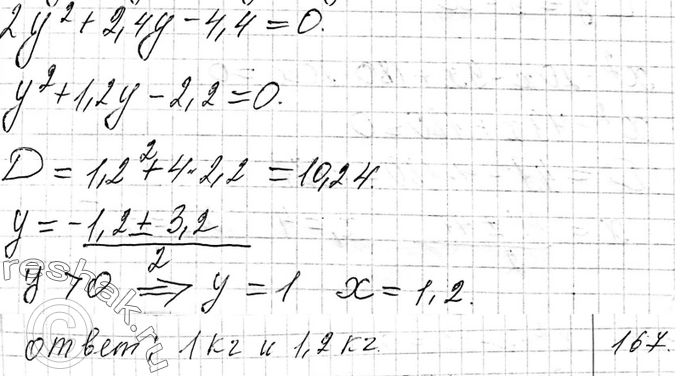 2y² + 2,4y - 4,4 = 0.
y² + 1,2y - 2,2 = 0.
D = 1,2² + 4·2,2 = 10,24.
y = -1,2 ± 3,2
2
y > 0 ⇒ y = 1 x = 1,2.
ответ: 1 кг и 1,2 кг. 167.
reshak.ru